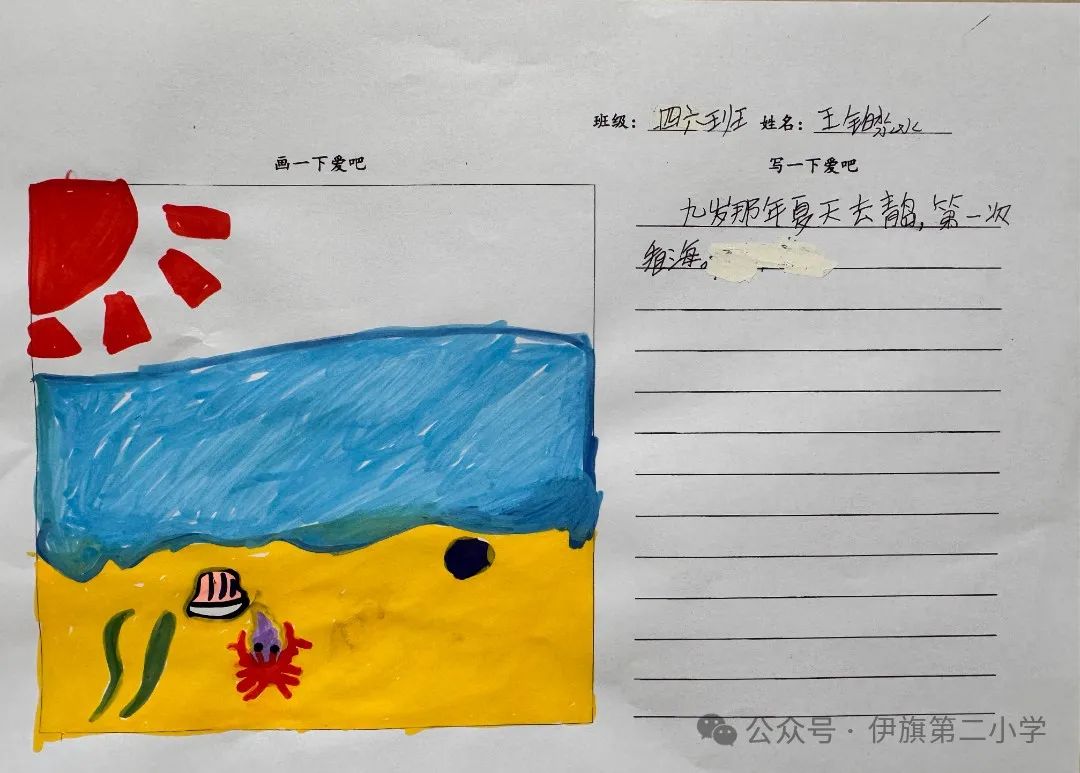 班级：四六班 姓名：王铂淼
画一下爱吧
写一下爱吧
九岁那年夏天去青岛，第一次
看海。
公众号·伊旗第二小学